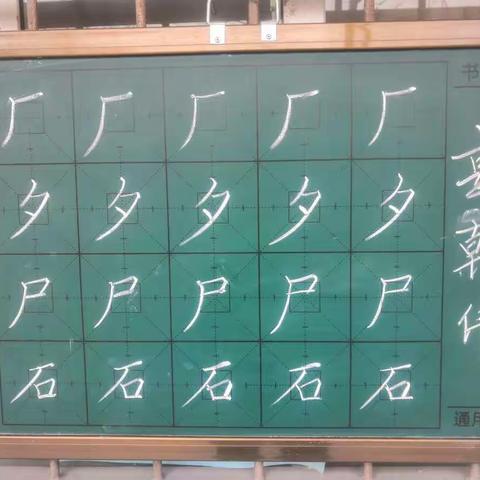 厂厂厂厂厂
夕夕夕夕夕
尸尸尸尸尸
石石石石石
书
通用